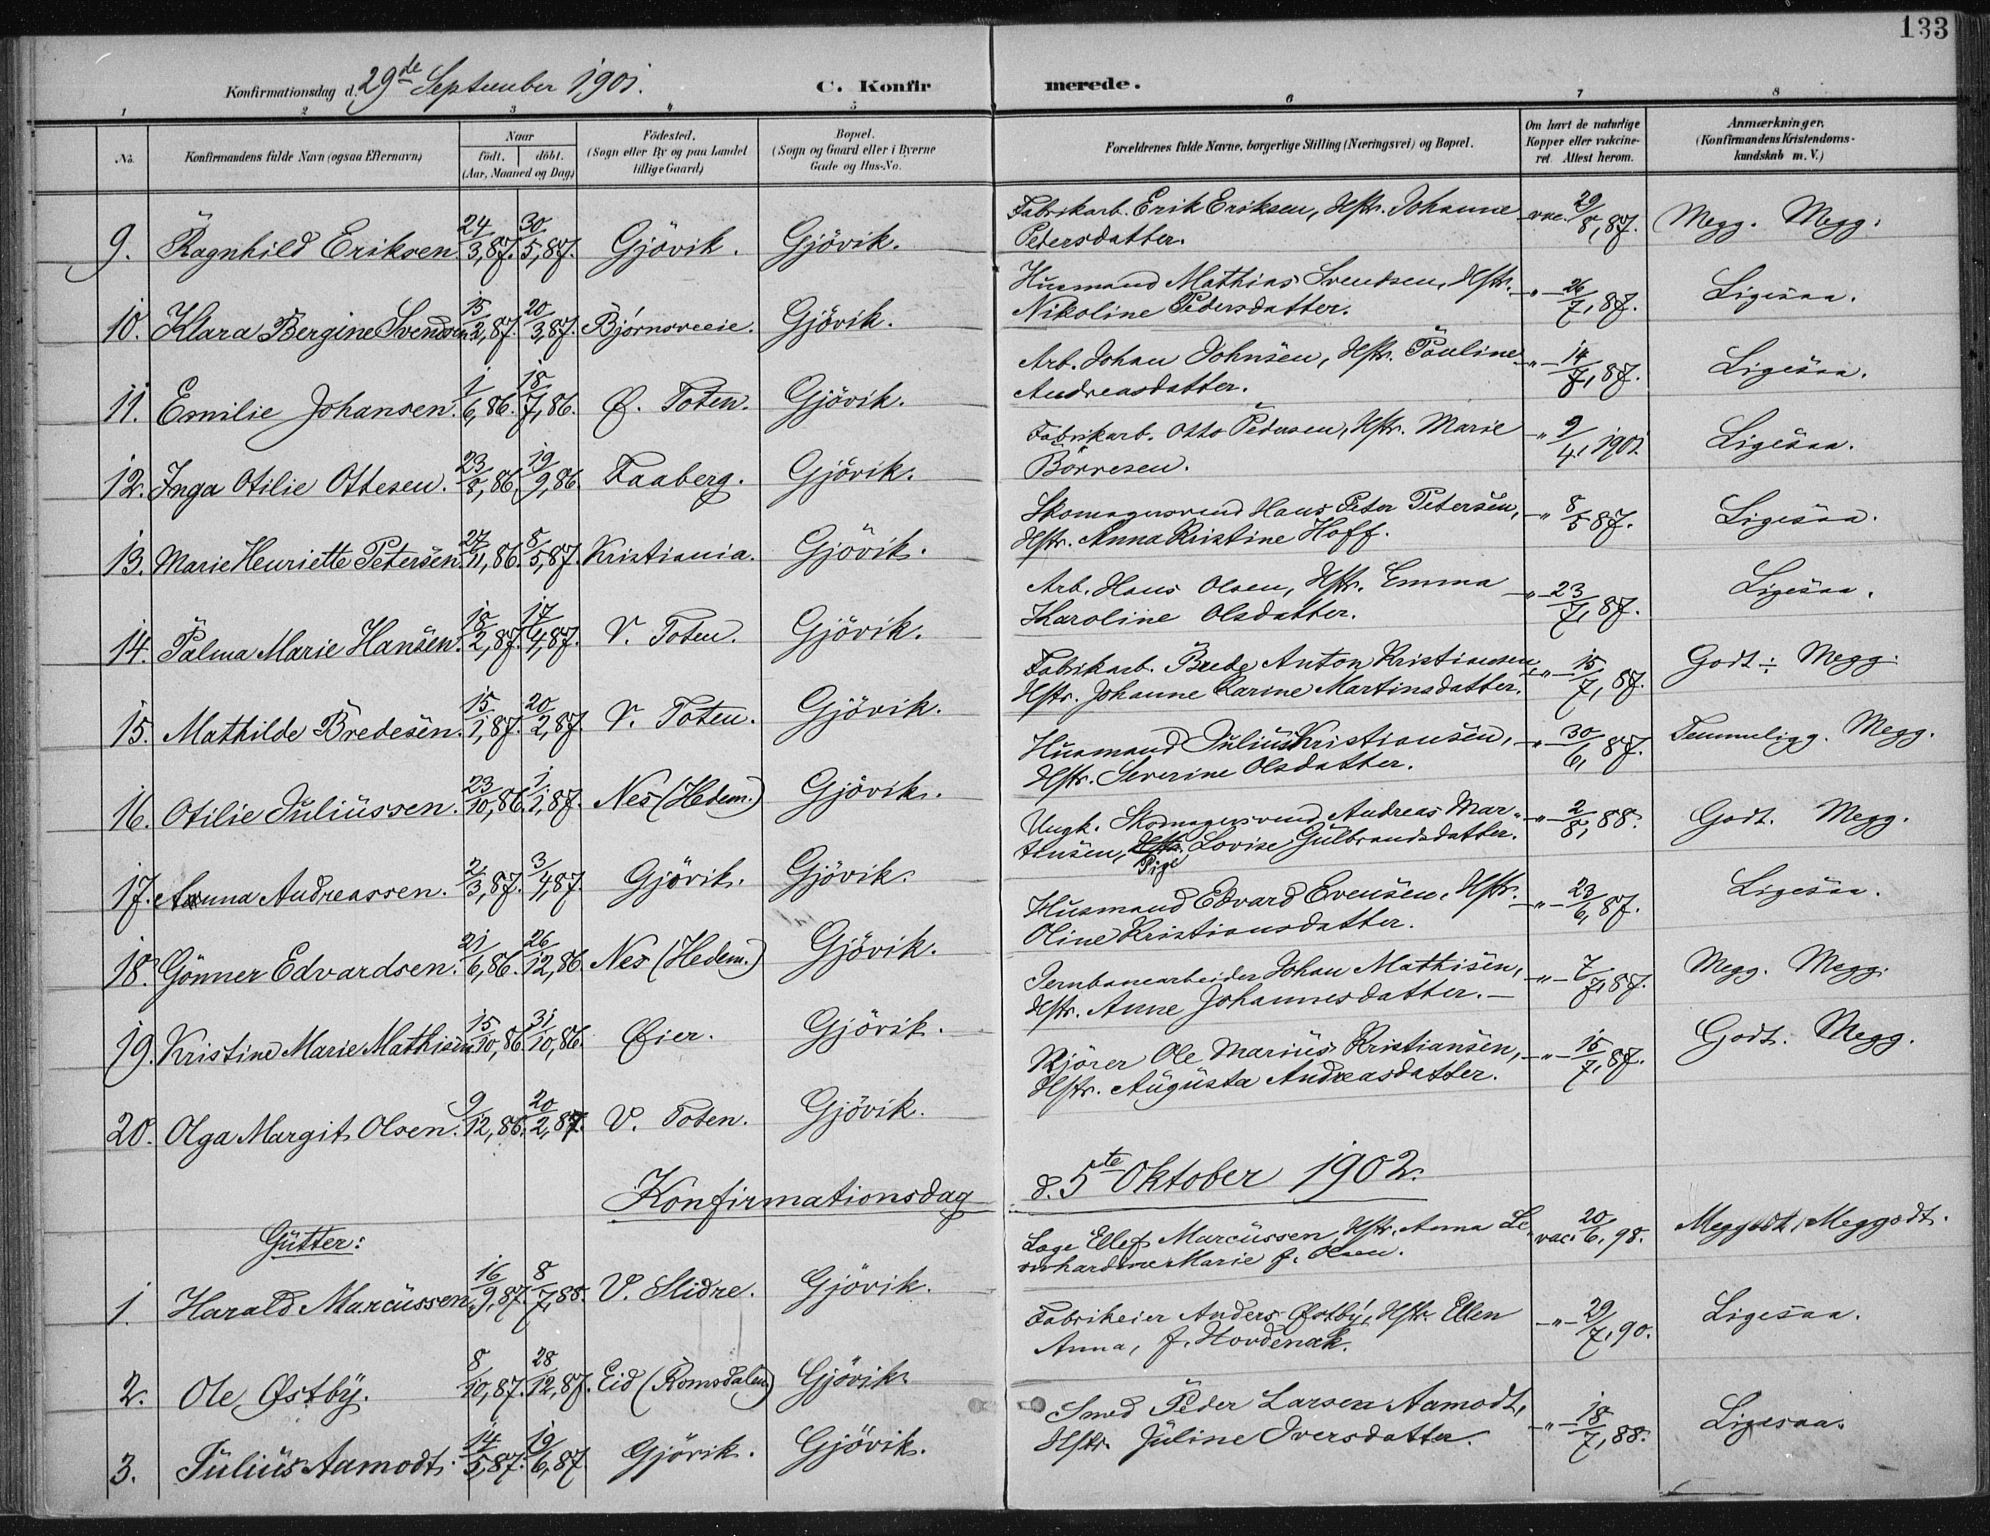 133
Konfirmationsdag d. 29de September 1901.
C. Konfirmerede.
1 2 3 4 5 6 7 8
No. Konfirmandens fulde Navn (ogsaa Efternavn) Naar født. døbt. (Aar, Maaned og Dag) Fødested. (Sogn eller By og paa Landet tillige Gaard) Bopæl. (Sogn og Gaard eller i Byerne Gade og Hus-No. Forældrenes fulde Navne, borgerlige Stilling (Næringsvei) og Bopæl. Om havt de naturlige Kopper eller vakcineret. Attest herom. Anmærkninger. (Konfirmandens Kristendomskundskab m. V.)
9. Ragnhild Eriksen. 24/3,87. 30/5,87. Gjövik. Gjövik. Fabrikarb. Erik Eriksen, Hstr. Johanne Petersdatter. vac. 29/8,87. Megg. Megg.
10. Klara Bergine Svendsen 15/2,87. 20/3,87. Bjørnsveeie. Gjövik. Husmand Mathias Svendsen, Hstr. Nikoline Pedersdatter. -"- 26/7,87. Ligesaa.
11. Emilie Johansen. 1/6,86. 18/7,86. Ø. Toten. Gjövik. Arb. Johan Johnsen, Hstr. Pauline Andreasdatter. -"- 14/7,87. Ligesaa.
12. Inga Otilie Ottesen. 23/8,86. 19/9,86. Faaberg. Gjövik. Fabrikarb. Otto Pedersen, Hstr. Marie Börresen. -"- 9/4,1901. Ligesaa.
13. Marie Henriette Petersen. 27/11,86. 8/5,87. Kristiania. Gjövik. Skomagersvend Hans Peter Petersen, Hstr. Anna Kristine Hoff. -"- 8/5 87. Ligesaa.
14. Palma Marie Hansen. 18/2,87. 17/4,87. V. Toten. Gjövik. Arb. Hans Olsen, Hstr. Emma Karoline Olsdatter. -"- 23/7,87. Ligesaa.
15. Mathilde Bredesen. 15/1,87. 20/2,87. V. Toten. Gjövik. Fabrikarb. Brede Anton Kristiansen, Hstr. Johanne Karine Martinsdatter. -"- 15/7,87. Godt ÷ Megg.
16. Otilie Juliussen. 23/10,86. 1/1,87. Nes (Hedem.) Gjövik. Husmand Julius Kristiansen, Hstr. Severine Olsdatter. -"- 30/6,87. Temmeligg. Megg.
17. Anna Andreassen. 2/3,87. 3/4,87. Gjövik. Gjövik. Ungk. Skomagersvend Andreas Martinsen, Pige Lovise Gulbrandsdatter. -"- 2/8,88. Godt. Megg.
18. Gönner Edvardsen. 21/6,86. 26/12,86. Nes (Hedem.) Gjövik. Husmand Edvard Evensen, Hstr. Oline Kristiansdatter. -"- 23/6,87. Ligesaa.
19. Kristine Marie Mathisen 15/10,86. 31/10,86. Øier. Gjövik. Jernbanearbeider Johan Mathisen, Hstr. Anne Johannesdatter. -"- 7/7,87. Megg. Megg.
20. Olga Margit Olsen. 9/12,86. 20/2,87. V. Toten. Gjövik. Kjörer Ole Marius Kristiansen, Hstr. Augusta Andreasdatter. -"- 15/7,87. Godt. Megg.
Konfirmationsdag d. 5te Oktober 1902.
Gutter:
1. Harald Marcussen. 16/9,87. 8/7,88. V. Slidre. Gjövik. Loge Ellef Marcussen, Hstr. Anna Leonhardine Marie f. Olsen. vac. 20/6,98. Meggodt, Meggodt.
2. Ole Østby. 8/10,87. 28/12,87. Eid (Romsdalen) Gjövik. Fabrikeier Anders Østby, Hstr. Ellen Anna, f. Hovdenak. -"- 29/7,90. Ligesaa.
3. Julius Aamodt. 14/5,87. 19/6,87. Gjövik. Gjövik. Smed Peder Larsen Aamodt, Hstr. Juline Iversdatter. -"- 18/7,88. Ligesaa.